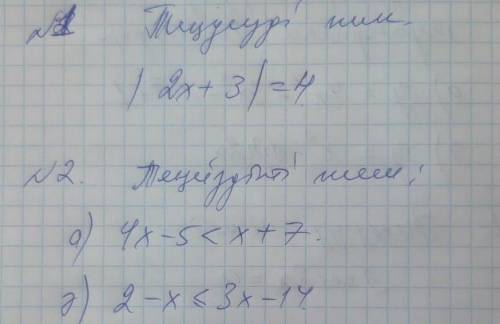 №1 Теңдеуді шеш.
| 2x + 3 | = 4
№2. Теңсіздікті шеш:
а) 4x - 5 < x + 7.
ә) 2 - x ≤ 3x - 14